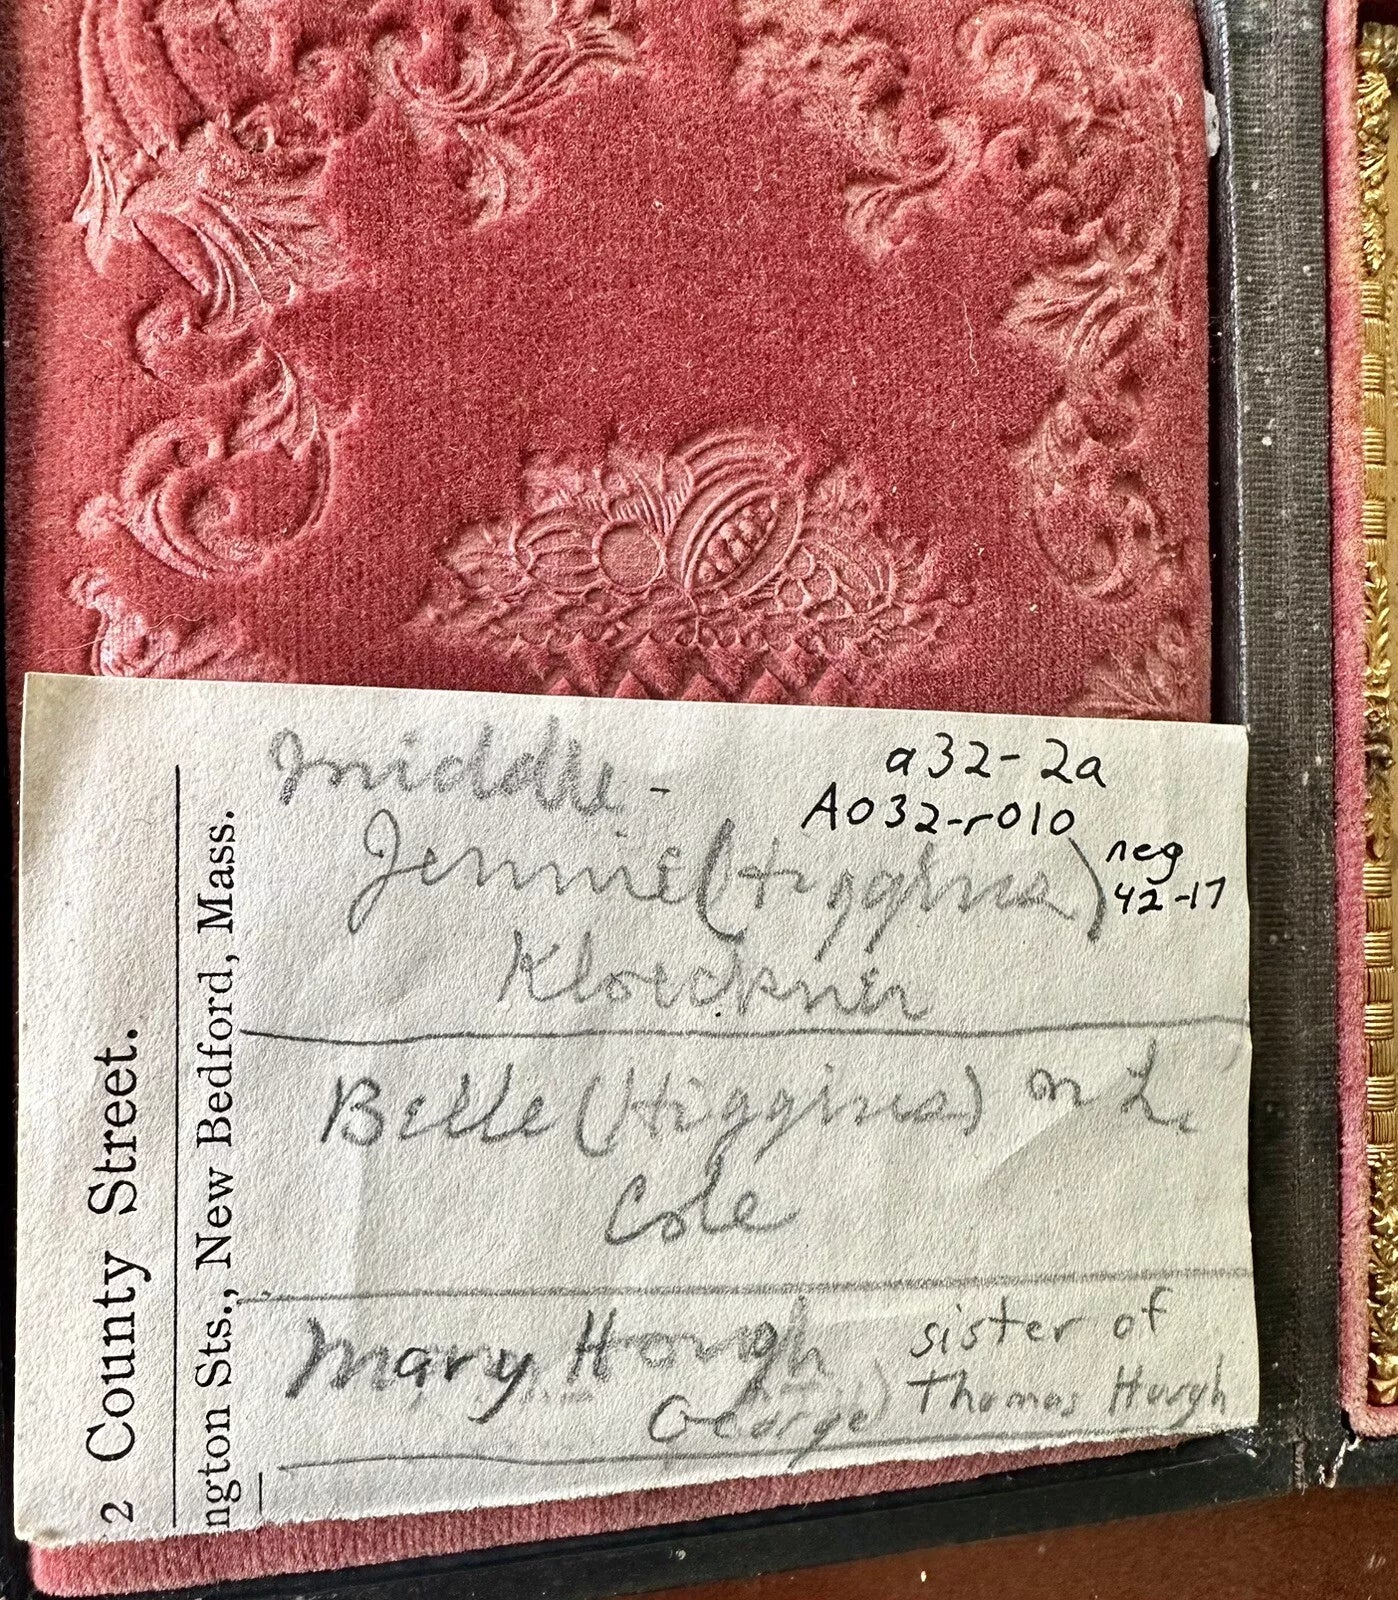 middle -
a32-2a
A032-r010
Jennie (Higgins)
neg
42-17
Kloeckner
Belle (Higgins) m L.
Cole
Mary Hough sister of
George) Thomas Hough
2 County Street.
ngton Sts., New Bedford, Mass.